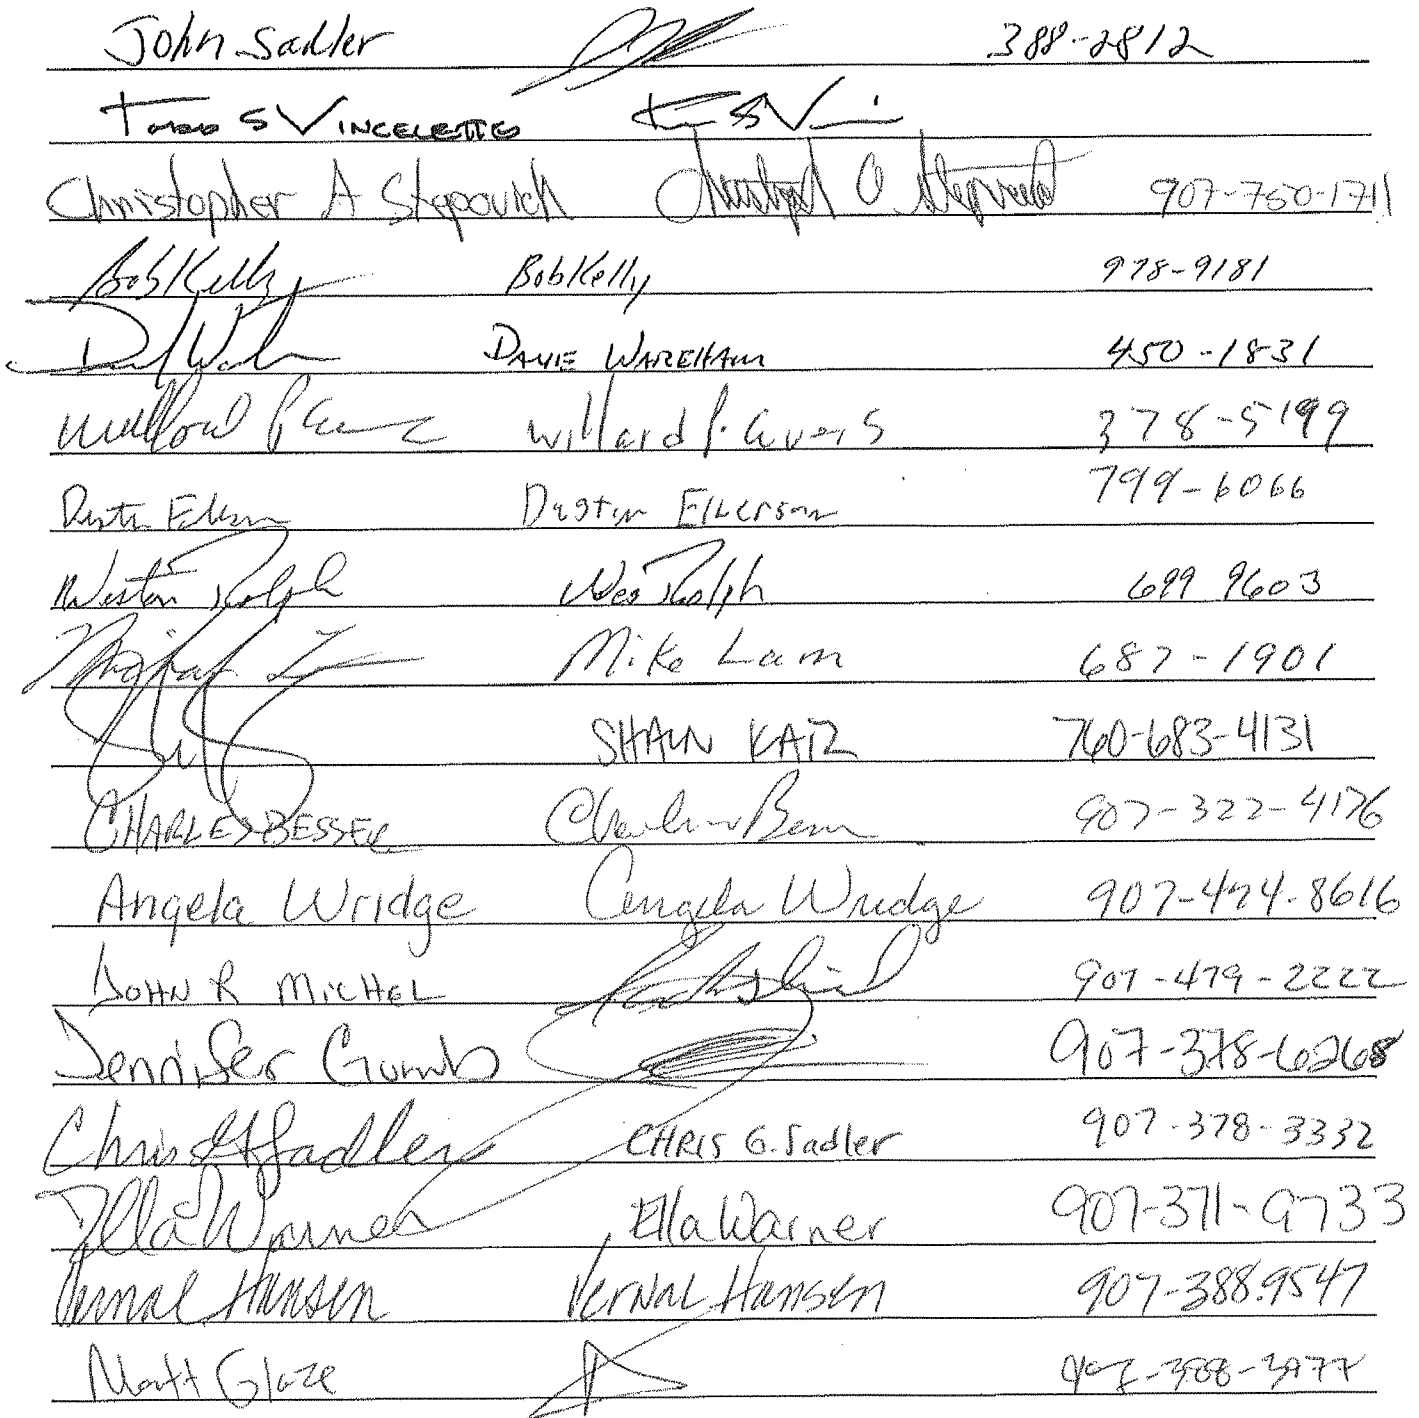 John Sadler 388-2812
Todd S Vincelette
Christopher A Stepovich Christoph A. Stepovich 907-750-1711
Bob Kelly Bob Kelly 978-9181
Dave Wareham 450-1831
Willard P. Avers 378-5199
Dustin Elkerson 799-6066
Weston Rolph Wes Rolph 699 9603
Mike Lam 687-1901
SHAUN KATZ 760-683-4131
CHARLES BESSEE 907-322-4176
Angela Wridge Angela Wridge 907-474-8616
JOHN R MICHEL 907-479-2222
Jennifer Gumb 907-378-6268
Chris G Sadler CHRIS G. Sadler 907-378-3332
Ella Warner Ella Warner 907-371-9733
Vernal Hansen Vernal Hansen 907-388.9547
Matt Glaze